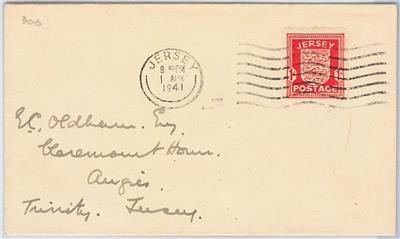 306
JERSEY
9 PM
1 APR
1941
JERSEY
1D 1D
POSTAGE
E.C. Oldham. Esq
Claremont House.
Augrès.
Trinity. Jersey.